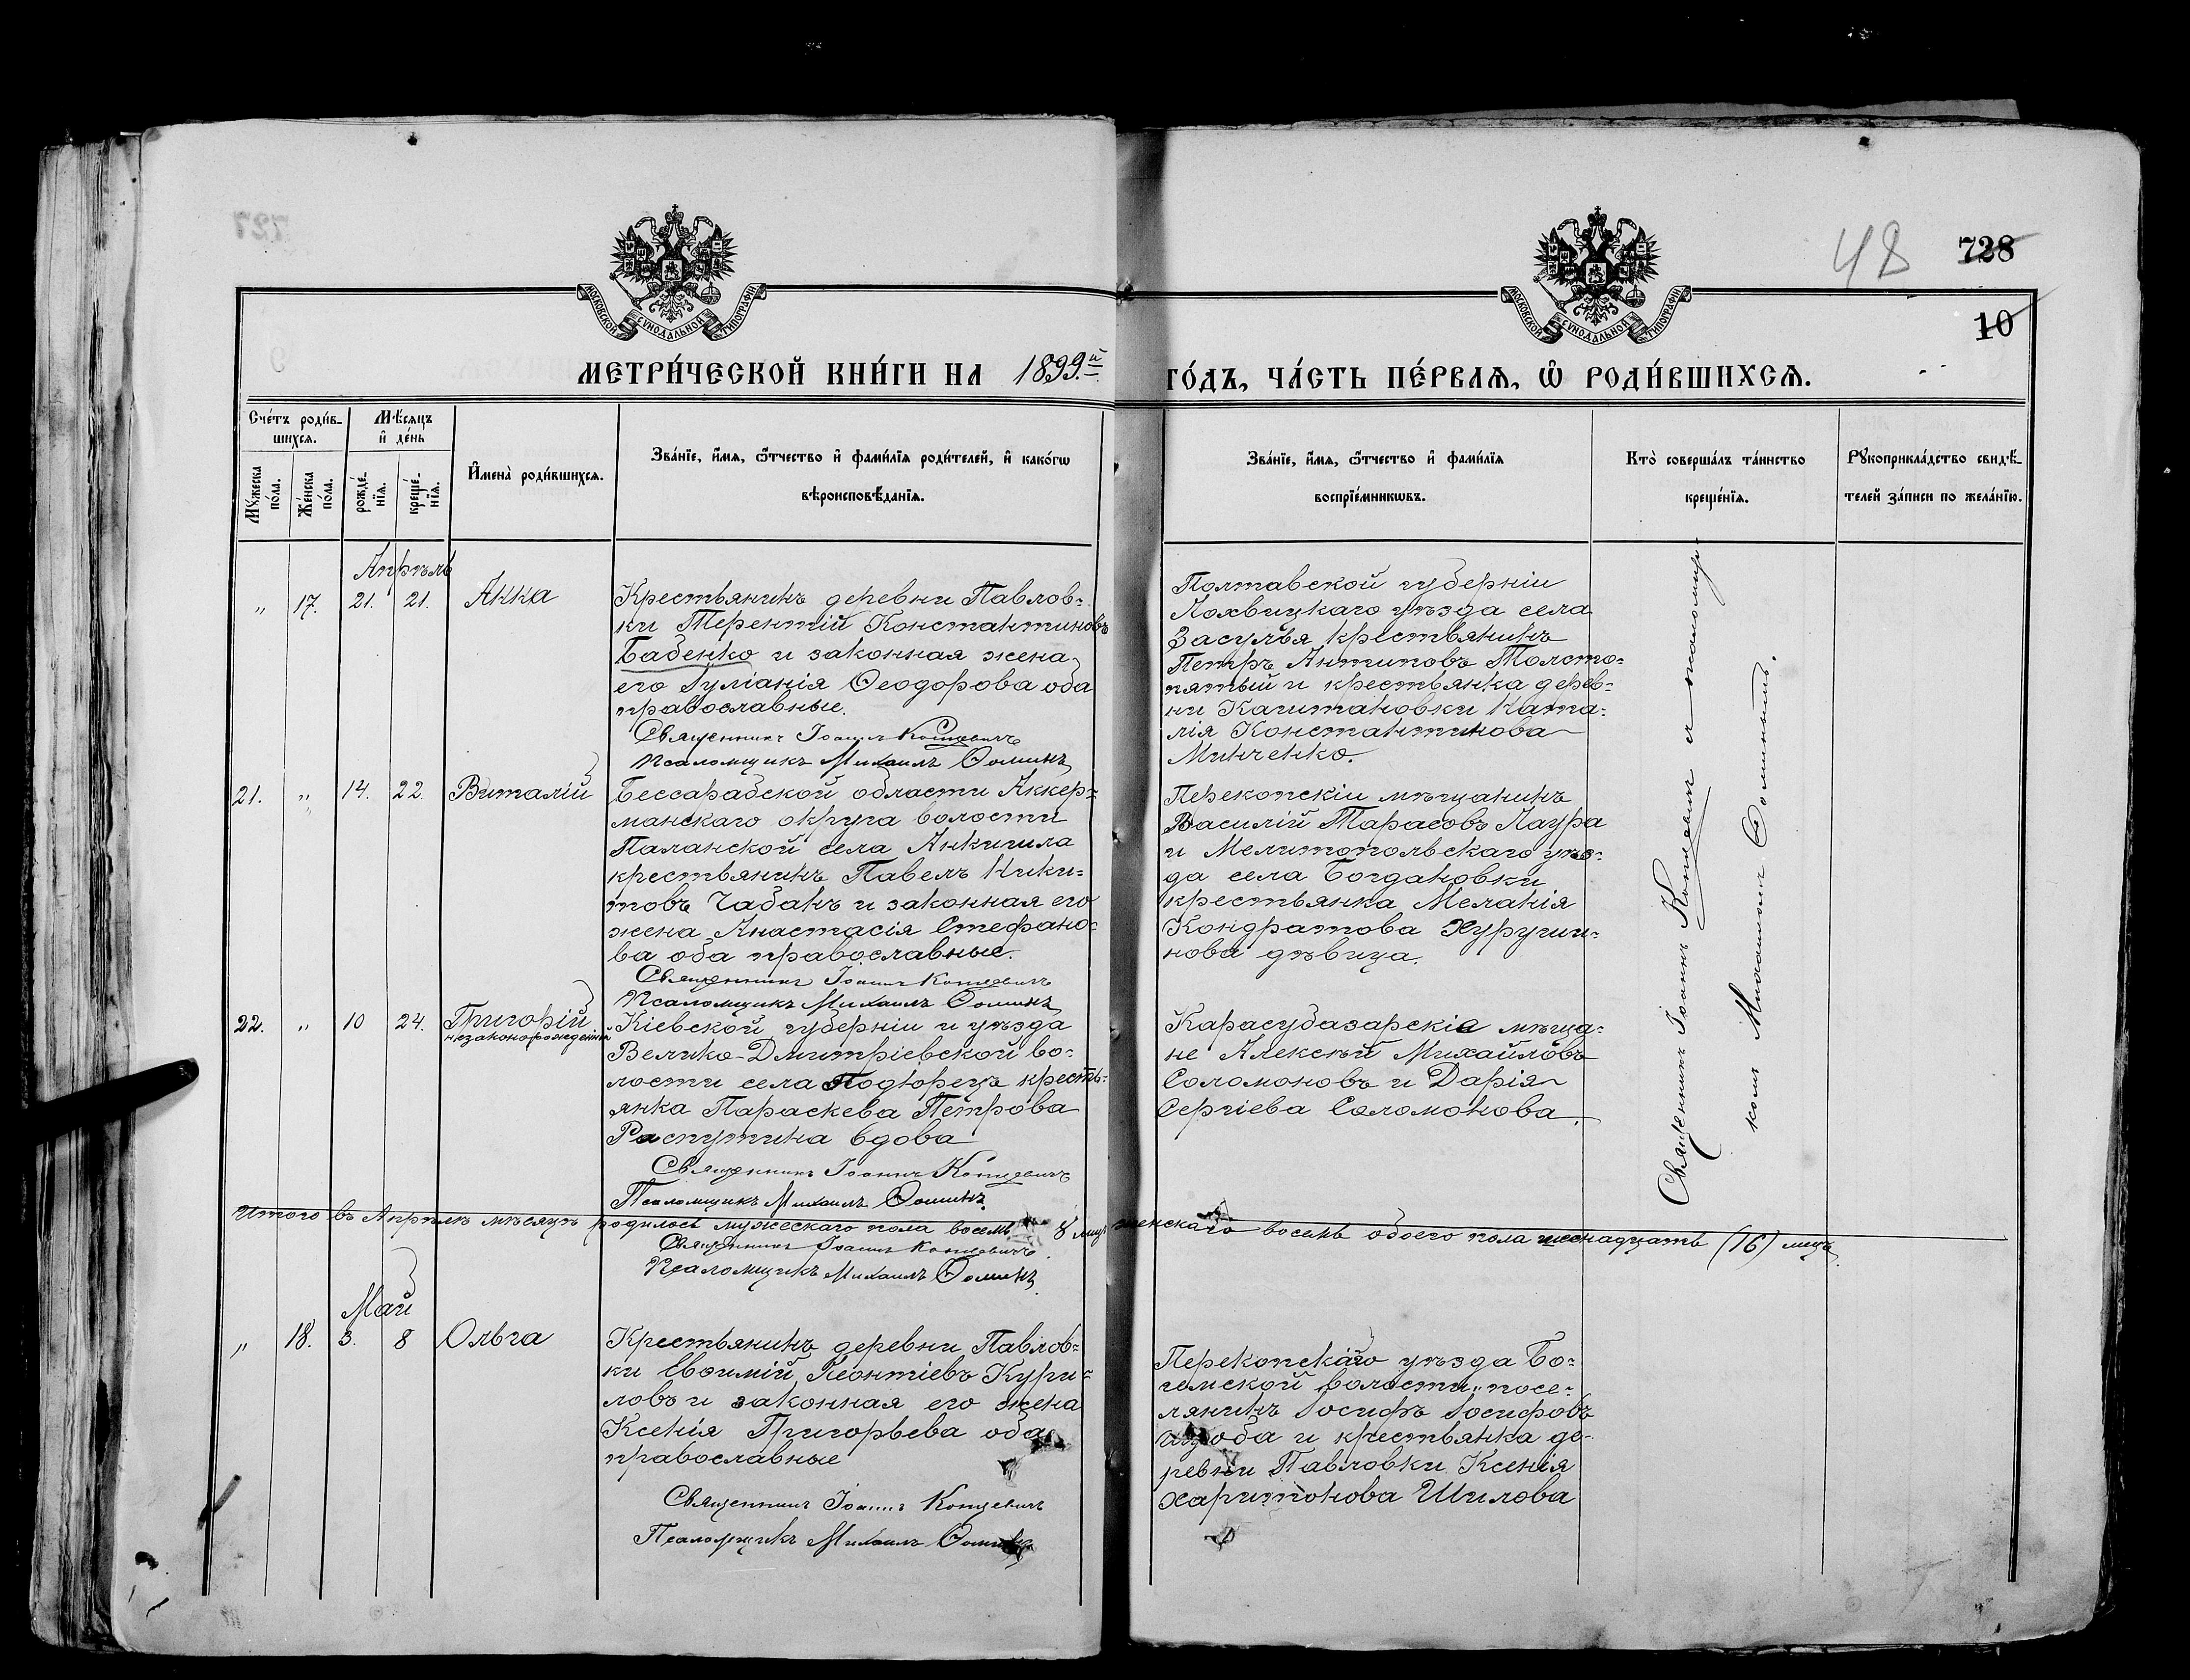 48
728
10
МОСКОВСКОЙ СУНОДАЛЬНОЙ ТИПОГРАФІИ
МОСКОВСКОЙ СУНОДАЛЬНОЙ ТИПОГРАФІИ
МЕТРИ́ЧЕСКОЙ КНИ́ГИ НА 1899.й ГО́ДЪ, ЧА́СТЬ ПЕ́РВАѦ, Ѡ҆ РОДИ́ВШИХСѦ.
Сче́тъ роди́в-
шихсѧ.
Мѣ́сѧцъ
и҆ де́нь
Мꙋ́жеска
по́ла.
Же́нска
по́ла.
рожде́-
нїѧ.
креще́-
нїѧ.
И҆мена̀ роди́вшихсѧ.
Зва́нїе, и҆́мѧ, ѻ҆́тчество и҆ фами́лїѧ роди́телей, и҆ како́гѡ
вѣроисповѣ́данїѧ.
Зва́нїе, и҆́мѧ, ѻ҆́тчество и҆ фами́лїѧ
воспрїе́мникѡвъ.
Кто̀ соверша́лъ та́инство
креще́нїѧ.
Рꙋкоприкла́дство свидѣ́-
телей за́писи по жела́нїю.
Апрѣль
" 17. 21. 21. Анна
Крестьянинъ деревни Павлов-
ки Терентій Константиновъ
Бабенко и законная жена
его Іуліанія Ѳеодорова оба
православные.
Священникъ Іоаннъ Концевичъ
Псаломщикъ Михаилъ Ѳоминъ
Полтавской губерніи
Лохвицкаго уѣзда села
Засулья крестьянинъ
Петръ Антиповъ Толсто-
пятый и крестьянка дерев-
ни Капитановки Ната-
лія Константинова
Минченко.
21. " 14. 22. Виталій
Бессарабской области Аккер-
манскаго округа волости
Паланской села Анкигила
крестьянинъ Павелъ Ники-
товъ Чабанъ и законная его
жена Анастасія Стефано-
ва оба православные.
Священникъ Іоаннъ Концевичъ
Псаломщикъ Михаилъ Ѳоминъ
Перекопскіи мѣщанинъ
Василій Тарасовъ Лаура
и Мелитопольскаго уѣз-
да села Богдановки
крестьянка Меланія
Кондратова
нова дѣвица.
22. " 10 24. Григорій
незаконорожденный
Кіевской губерніи и уѣзда
Велико-Дмитріевской во-
лости села Подгорецъ кресть-
янка Параскева Петрова
Распутина вдова
Священникъ Іоаннъ Концевичъ
Псаломщикъ Михаилъ Ѳоминъ
Карасубазарскіе мѣща-
не Алексѣй Михайловъ
Соломоновъ и Дарія
Сергіева Соломонова.
Итого въ Апрѣлѣ мѣсяцѣ родилось мужескаго пола восемь 8 лицъ женскаго восемь обоего пола шеснадцать (16) лицъ.
Священникъ Іоаннъ Концевичъ
Псаломщикъ Михаилъ Ѳоминъ
Май
" 18. 3. 8 Ольга
Крестьянинъ деревни Павлов-
ки Евѳимій Леонтіевъ Кури-
ловъ и законная его жена
Ксенія Григорьева оба
православные
Священникъ Іоаннъ Концевичъ
Псаломщикъ Михаилъ Ѳоминъ
Перекопскаго уѣзда Бо-
гемской волости посе-
лянинъ Іосифъ Іосифовъ
и крестьянка де-
ревни Павловки Ксенія
Харитонова Шилова
Священникъ Іоаннъ Концевичъ и псаломщи-
комъ Михаиломъ Ѳоминымъ.